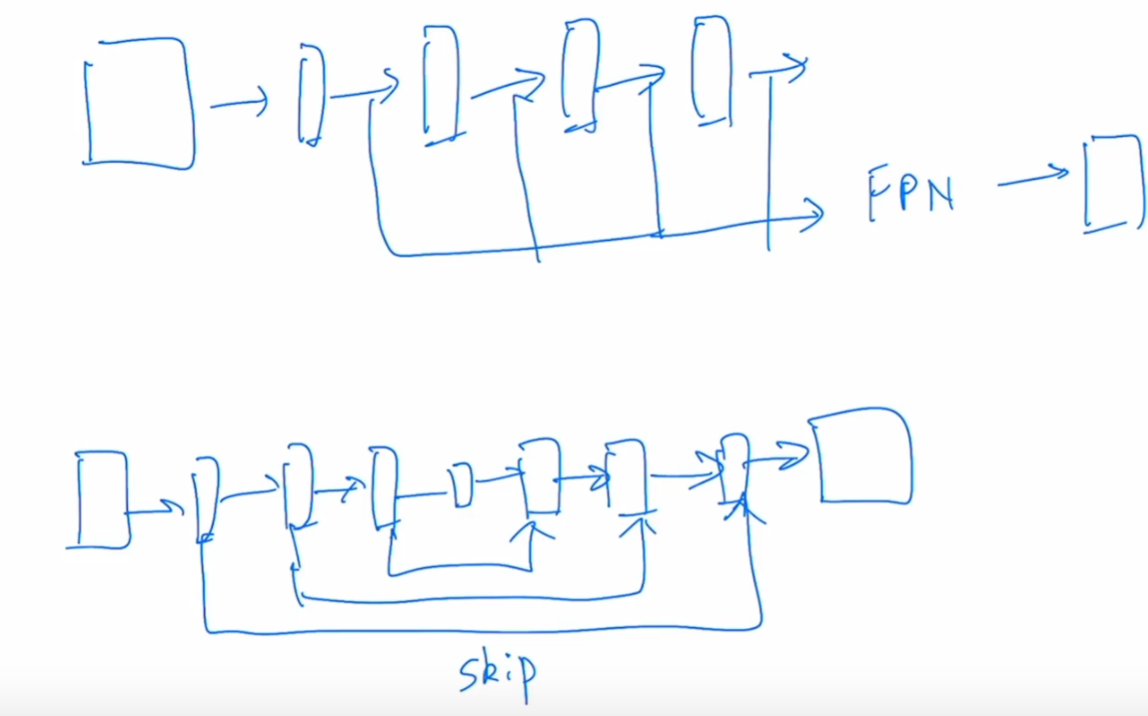 FPN
skip